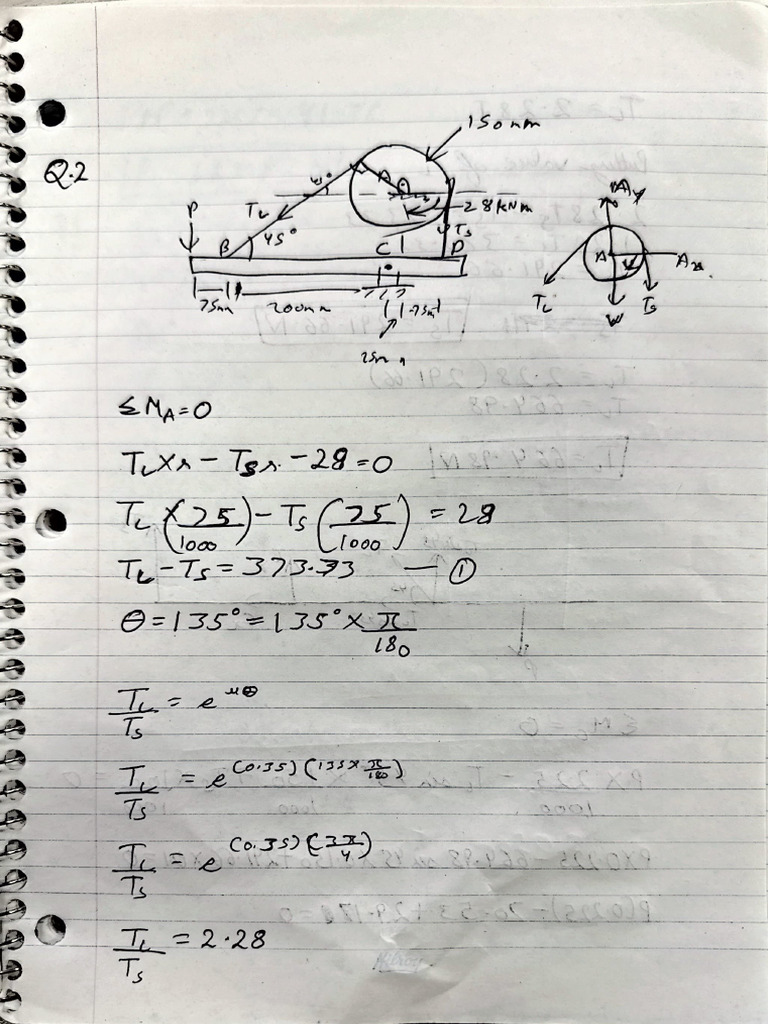 Q.2
150mm
TL
45°
A
28 kNm
P
B
45°
C
TS
D
75mm
200mm
75m
25m
Ay
A
Ax
TL
W
TS
≤ MA = 0
TL × r - TS r - 28 = 0
TL × (75/1000) - TS (75/1000) = 28
TL - TS = 373.33 — ①
θ = 135° = 135° × π/180
TL/TS = e^μθ
TL/TS = e^(0.35)(135×π/180)
TL/TS = e^(0.35)(3π/4)
TL/TS = 2.28